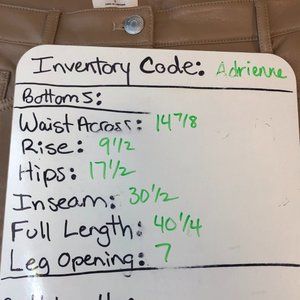 Inventory Code: Adrienne
Bottoms:
Waist Across: 14 7/8
Rise: 9 1/2
Hips: 17 1/2
Inseam: 30 1/2
Full Length: 40 1/4
Leg Opening: 7